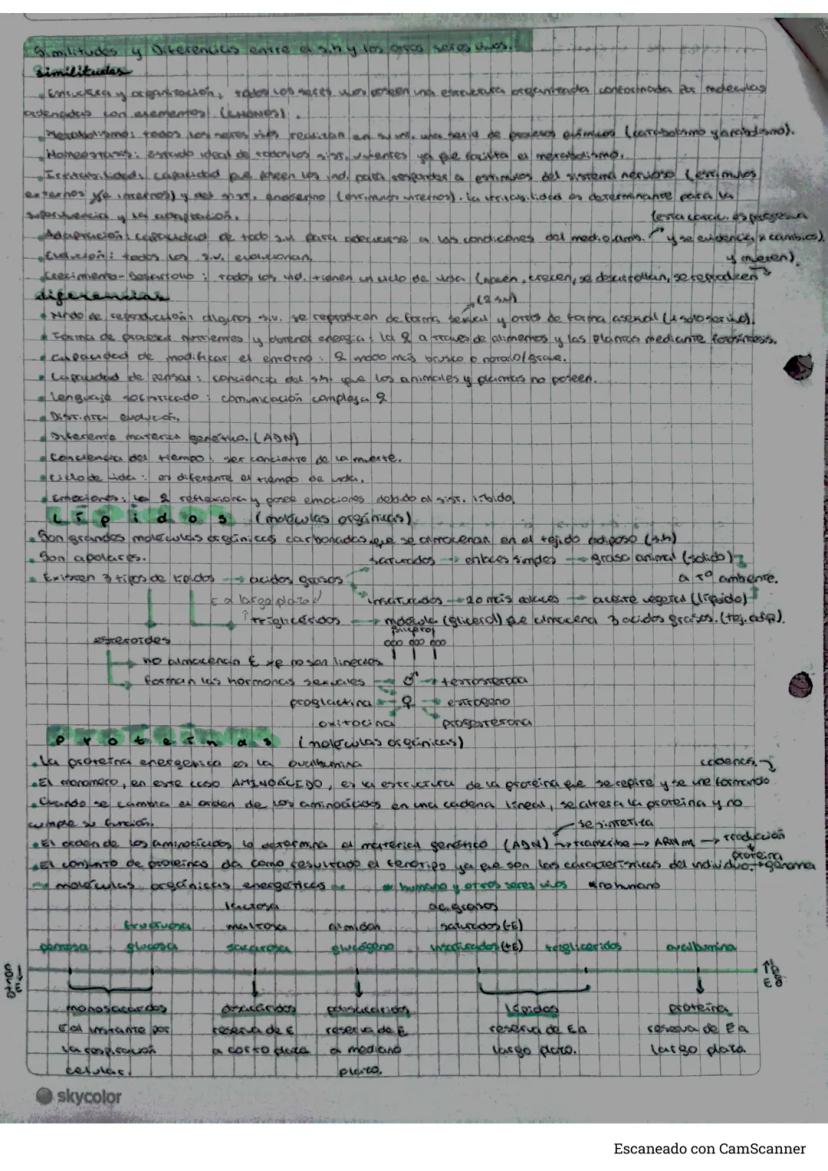 Similitudes y Diferencias entre el s.h y los otros seres vivos.
Similitudes
• Estructura y organización, todos los seres vivos poseen una estructura organizada conformada por moléculas
ordenadas con elementos
• Metabolismo: todos los seres vivos realizan en su int. una serie de procesos químicos (catabolismo y anabolismo).
• Homeostasis: estado ideal de todos los sist. vivientes ya que facilita el metabolismo.
• Irritabilidad: capacidad que poseen los ind. para responder a estímulos del sistema nervioso (estímulos
externos y/e internos) y del sist. endocrino (estímulos internos). La irritabilidad es determinante para la
supervivencia y la adaptación.
• Adaptación: capacidad de todo s.v para adecuarse a las condiciones del medio amb. (esta caract. es progresiva
y se evidencia x cambios)
• Evolución: todos los s.v. evolucionan.
• Crecimiento-Desarrollo: todos los ind. tienen un ciclo de vida (nacen, crecen, se desarrollan, se reproducen
y mueren).
diferencias
• Modo de reproducción: algunos s.v. se reproducen de forma sexual (2 s.v) y otros de forma asexual (1 solo ser vivo).
• Forma de producir nutrientes y obtener energía: la ♀ a través de alimentos y las plantas mediante fotosíntesis.
• Capacidad de modificar el entorno: ♀ modo más brusco o notorio/grave.
• Capacidad de pensar: conciencia del s.h. que los animales y plantas no poseen.
• Lenguaje sofisticado: comunicación compleja ♀
• Distinta evolución.
• Diferente material genético. (ADN)
• Conciencia del tiempo: ser conciente de la muerte.
• Ciclo de vida: es diferente el tiempo de vida.
• Emociones: la ♀ reflexiona y posee emociones debido al sist. límbico.
Lípidos (moléculas orgánicas)
• Son grandes moléculas orgánicas carbonadas que se almacenan en el tejido adiposo (s.h)
• Son apolares.
saturados → enlaces simples → grasa animal (sólido)
• Existen 3 tipos de lípidos → ácidos grasos
a Tº ambiente.
E a largo plazo
insaturados → 2 o más enlaces → aceite vegetal (líquido)
triglicéridos → molécula (glicerol) que almacena 3 ácidos grasos. (tej. adip).
esteroides
→ no almacenan E xq no son lineales
→ forman las hormonas sexuales → ♂ → testosterona
prolactina ← ♀ → estrógeno
oxitocina progesterona
Proteínas (moléculas orgánicas)
• La proteína energética es la ovalbumina
cadenas.
• El monómero, en este caso AMINOÁCIDO, es la estructura de la proteína que se repite y se une formando
• Cuando se cambia el orden de los aminoácidos en una cadena lineal, se altera la proteína y no
cumple su función.
se sintetiza
• El orden de los aminoácidos lo determina el material genético (ADN) → transcribe → ARNm → traducción
proteína
• El conjunto de proteínas da como resultado el fenotipo ya que son las características del individuo. → genoma
moléculas orgánicas energéticas • humano y otros seres vivos • no humano
lactosa ac. grasos
fructuosa maltosa almidón saturados (-E)
pentosa glucosa sacarosa glucógeno insaturados (+E) triglicéridos ovalbumina
monosacáridos disacáridos polisacáridos lípidos proteína
E al instante por reserva de E reserva de E reserva de E a reserva de E a
la respiración a corto plazo a mediano largo plazo. largo plazo.
celular. plazo.
skycolor
Escaneado con CamScanner